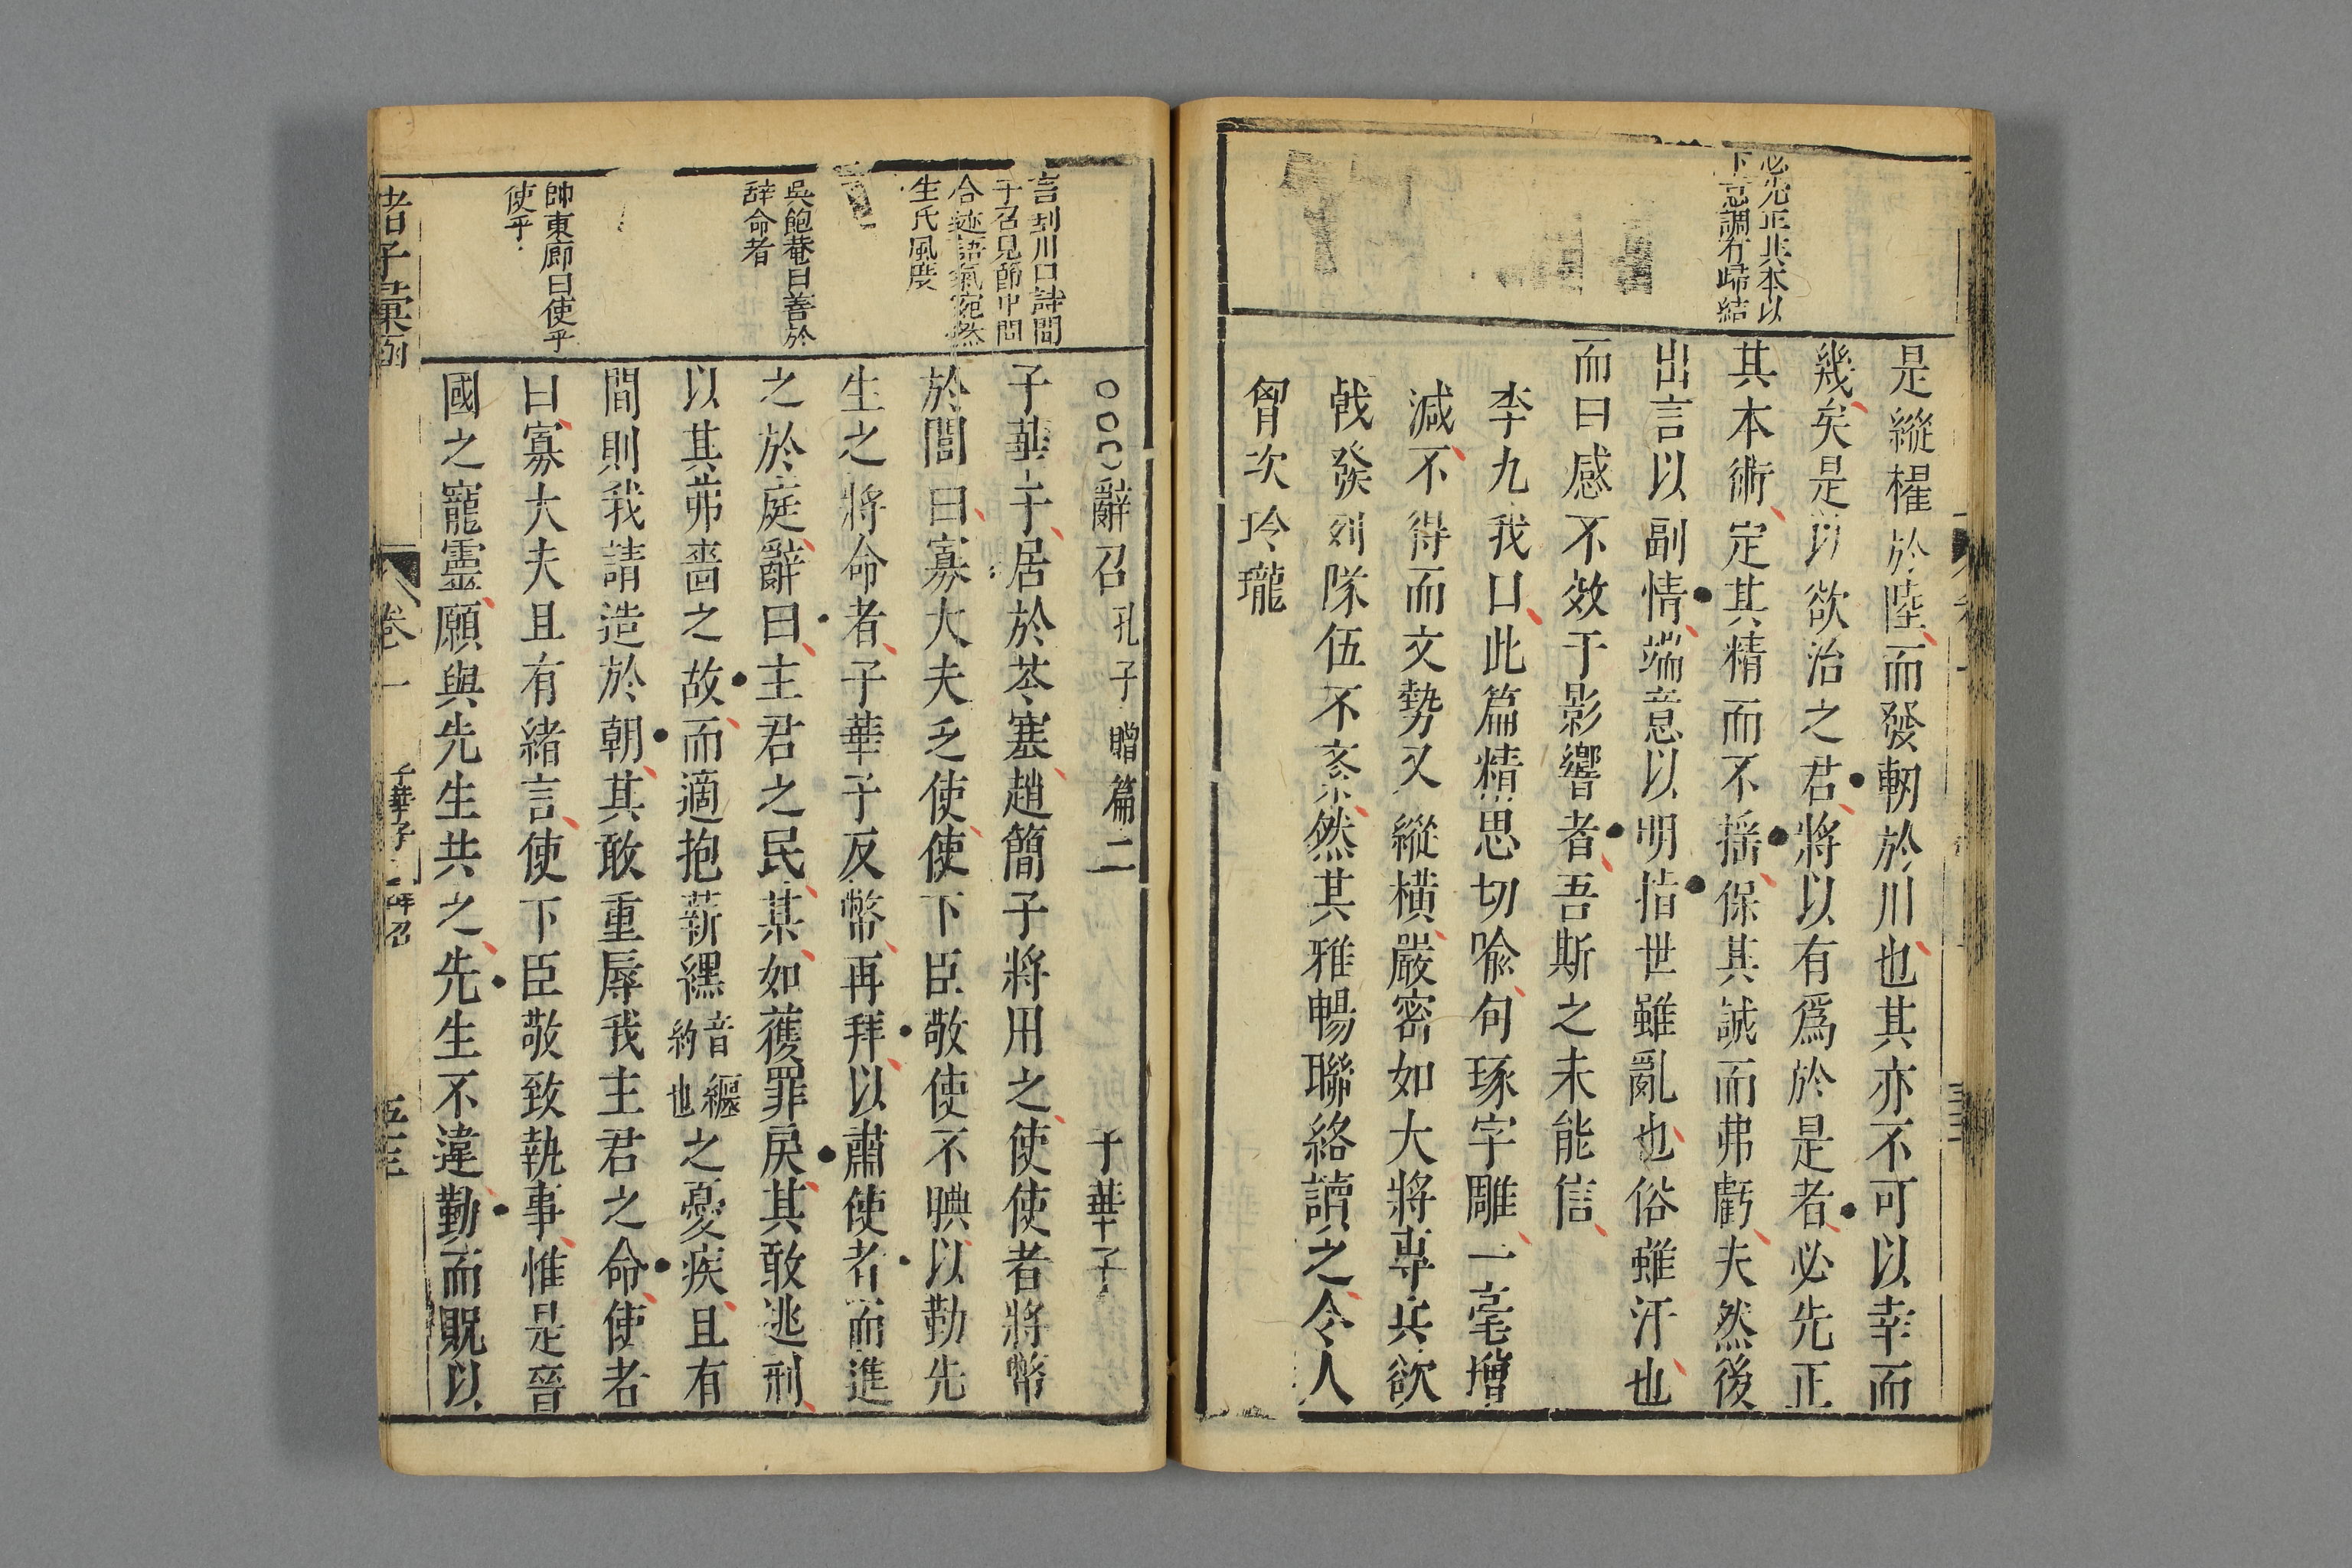 必先正其本以
下意調有歸結
是縱櫂於陸而發軔於川也其亦不可以幸而
幾矣是以欲治之君將以有爲於是者必先正
其本術定其精而不搖保其誠而弗虧夫然後
出言以副情端意以明指世雖亂也俗雖汙也
而曰感不效于影響者吾斯之未能信
李九我口此篇精思切喩句琢字雕一毫增
減不得而文勢又縱橫嚴密如大將專兵欲
戟發列隊伍不紊然其雅暢聯絡讀之令人
胷次玲瓏
川口詩間
子召見節中問
合迹語氣宛然
生氏風度
吳飽菴曰善於
辭命者
帥東廊曰使乎
使乎
○○○辭召 孔子贈篇二 子華子
子華子居於苓塞趙簡子將用之使使者將幣
於閭曰寡大夫乏使使下臣敬使不腆以勤先
生之將命者子華子反幣再拜以肅使者而進
之於庭辭曰主君之民某如獲罪戾其敢逃刑
以其弗嗇之故而適抱薪纆音纆約也之憂疾且有
間則我請造於朝其敢重辱我主君之命使者
曰寡大夫且有緒言使下臣敬致執事惟是晉
國之寵靈願與先生共之先生不違勤而貺以
諸子彙函
卷一
子華子
辭召
五三